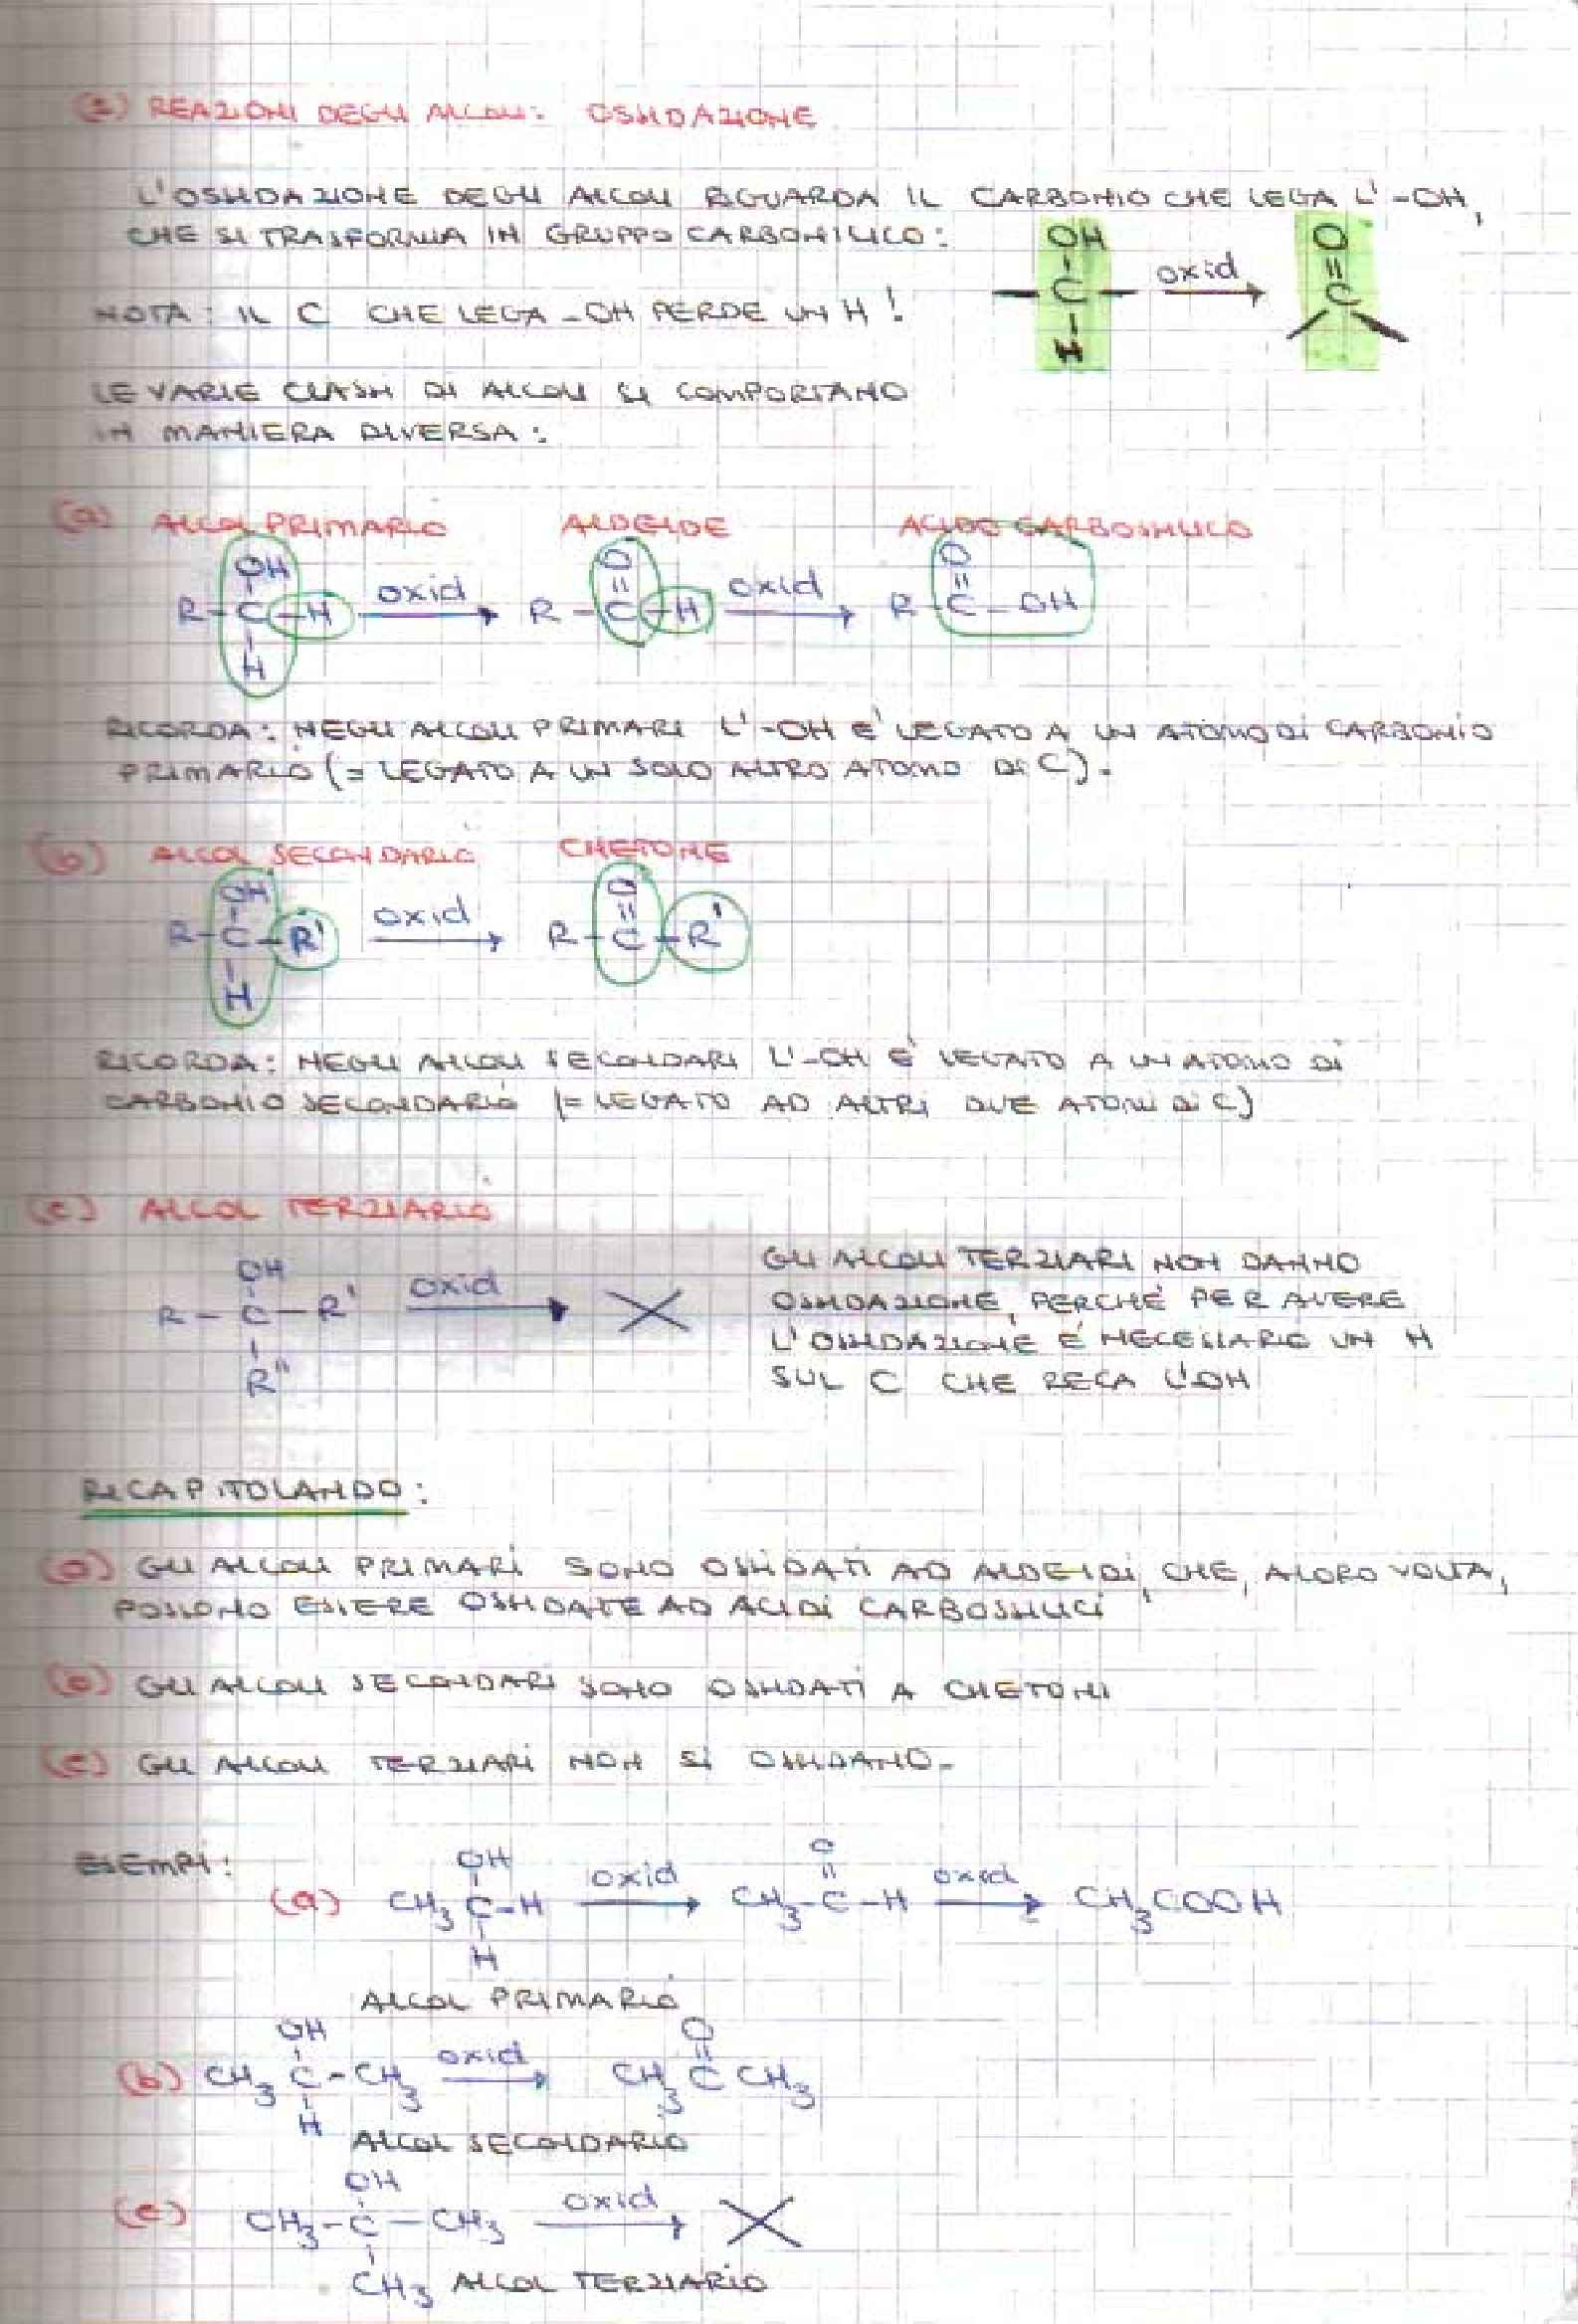 (2) REAZIONI DEGLI ALCOLI: OSSIDAZIONE
L'OSSIDAZIONE DEGLI ALCOLI RIGUARDA IL CARBONIO CHE LEGA L'-OH,
CHE SI TRASFORMA IN GRUPPO CARBONILICO:
OH
O
- C - oxid → C
H
NOTA: IL C CHE LEGA -OH PERDE UN H!
LE VARIE CLASSI DI ALCOLI SI COMPORTANO
IN MANIERA DIVERSA:
(a) ALCOL PRIMARIO ALDEIDE ACIDO CARBOSSILICO
OH O O
R-C-H oxid → R-C-H oxid → R-C-OH
H
RICORDA: NEGLI ALCOLI PRIMARI L'-OH E' LEGATO A UN ATOMO DI CARBONIO
PRIMARIO (= LEGATO A UN SOLO ALTRO ATOMO DI C).
(b) ALCOL SECONDARIO CHETONE
OH O
R-C-R' oxid → R-C-R'
H
RICORDA: NEGLI ALCOLI SECONDARI L'-OH E' LEGATO A UN ATOMO DI
CARBONIO SECONDARIO (= LEGATO AD ALTRI DUE ATOMI DI C)
(c) ALCOL TERZIARIO
OH
R-C-R' oxid → X
R"
GLI ALCOLI TERZIARI NON DANNO
OSSIDAZIONE, PERCHÉ PER AVERE
L'OSSIDAZIONE E' NECESSARIO UN H
SUL C CHE RECA L'OH
RICAPITOLANDO:
(a) GLI ALCOLI PRIMARI SONO OSSIDATI AD ALDEIDI, CHE, A LORO VOLTA,
POSSONO ESSERE OSSIDATE AD ACIDI CARBOSSILICI
(b) GLI ALCOLI SECONDARI SONO OSSIDATI A CHETONI
(c) GLI ALCOLI TERZIARI NON SI OSSIDANO.
ESEMPI:
OH O
(a) CH3 C-H oxid → CH3-C-H oxid → CH3COOH
H
ALCOL PRIMARIO
OH O
(b) CH3 C-CH3 oxid → CH3 C CH3
H
ALCOL SECONDARIO
OH
(c) CH3-C-CH3 oxid → X
CH3 ALCOL TERZIARIO